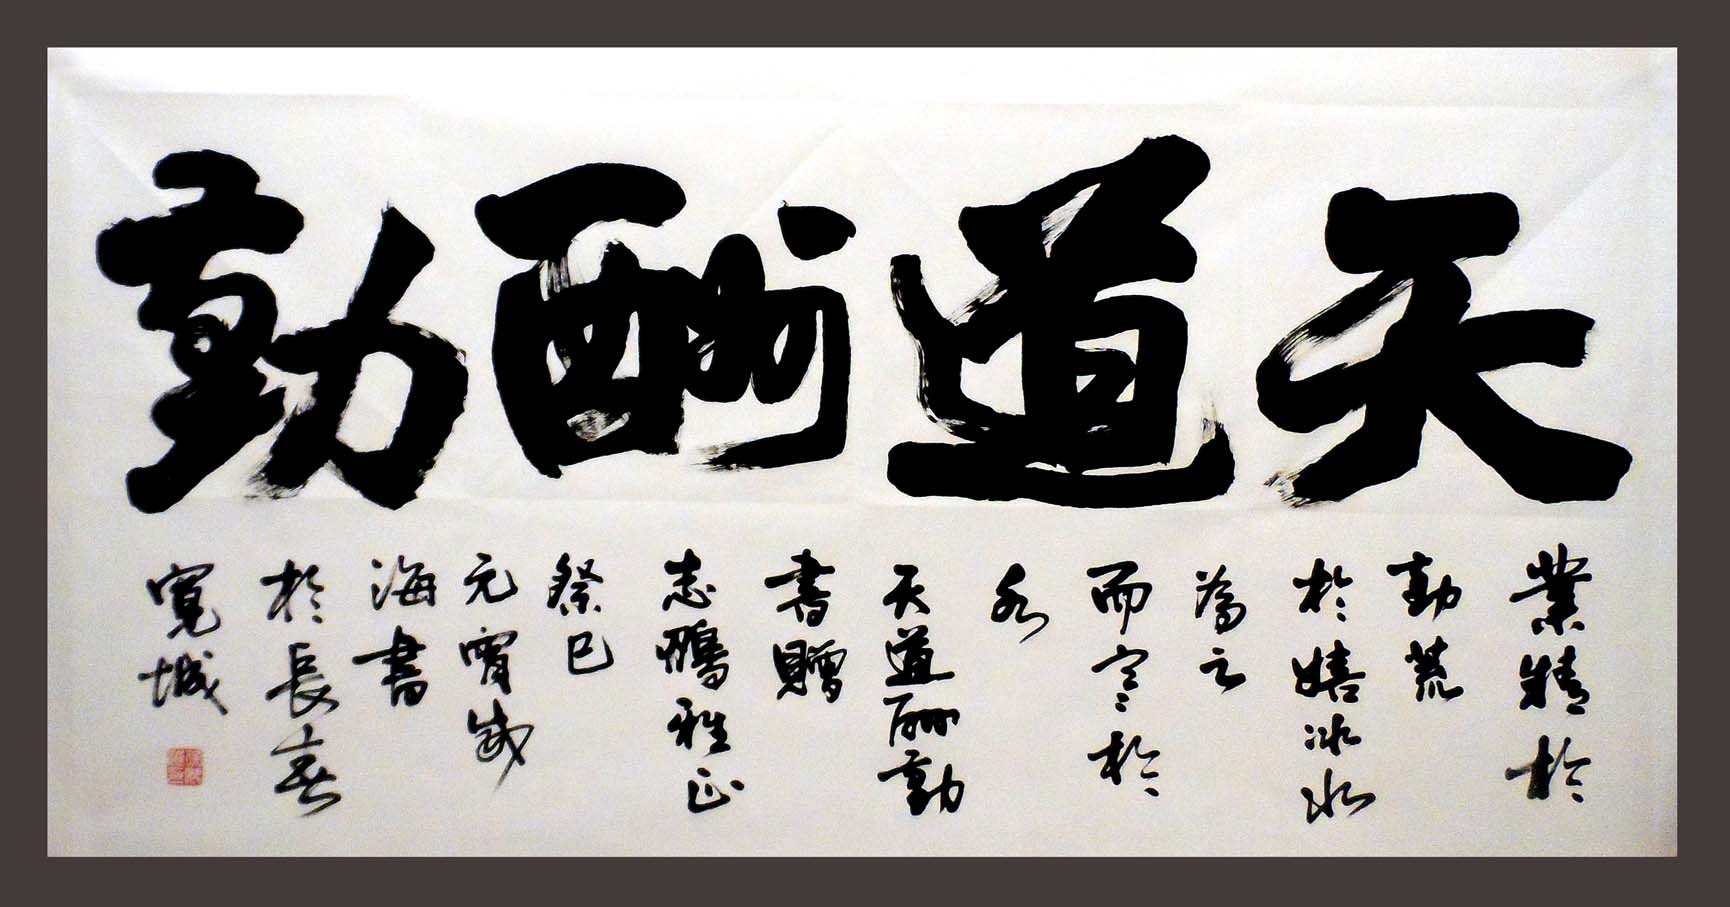 天道酬勤
業精於
勤荒
於嬉冰水
為之
而寒於
水
天道酬勤
書贈
志鵬雅正
癸巳
元宵
海書
於長春
寬城